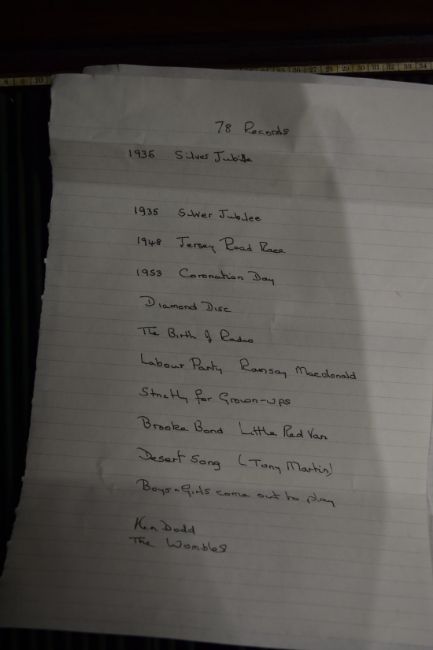 78 Records
1935 Silver Jubilee
1935 Silver Jubilee
1948 Jersey Road Race
1953 Coronation Day
Diamond Disc
The Birth of Radio
Labour Party Ramsay Macdonald
Strictly for Grown-ups
Brooke Bond Little Red Van
Desert Song (Tony Martin)
Boys & Girls come out to play
Ken Dodd
The Wombles